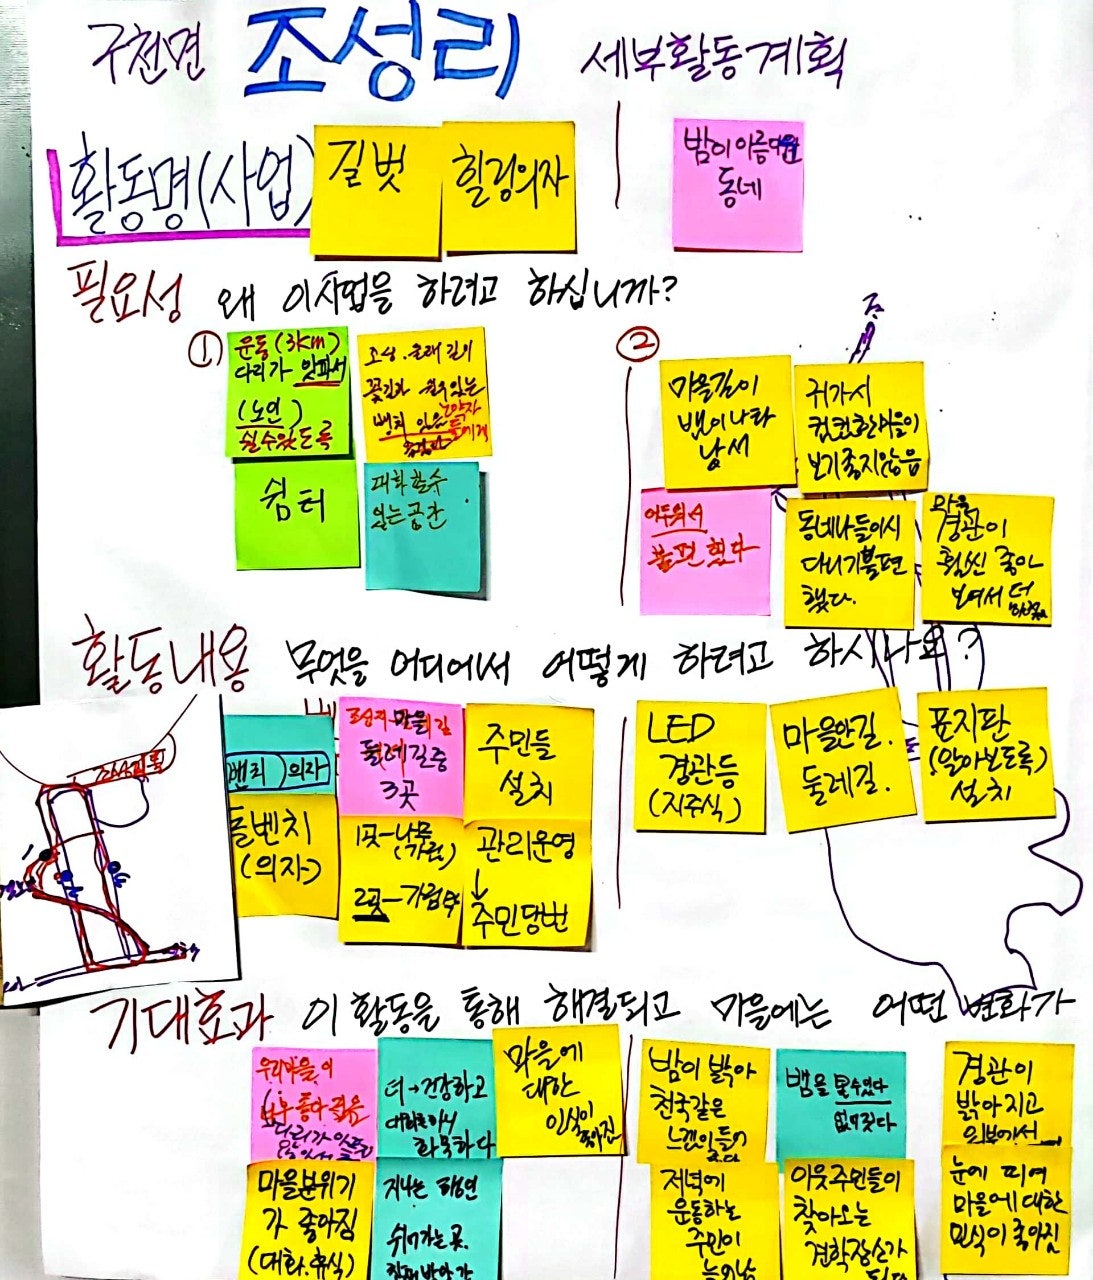 구천면 조성리 세부활동계획
활동명(사업)
길벗
힐링의자
밤이 아름다운
동네
필요성 왜 이사업을 하려고 하십니까?
①
운동(3km)
다리가 앞파서
(노인)
쉴수있도록
꽃길과 쉴수있는
벤치
쉼터
대화할수
있는공간
②
마을길이
뱀이나타
낳서
귀가시
컴컴한마을이
보기좋지않음
어두워서
불편했다
동네나들이시
다니기불편
했다.
마을
경관이
훨씬 좋아
보여서 더
활동내용 무엇을 어디에서 어떻게 하려고 하시나요?
벤치 의자
돌벤치
(의자)
조성리 마을길
둘레길중
3곳
1곳-나무
2곳-
주민들
설치
관리운영
↓
주민당번
LED
경관등
(지주식)
마을안길.
둘레길.
표지판
(알아보도록)
설치
기대효과 이활동을 통해 해결되고 마을에는 어떤 변화가
우리마을이
너무 좋다
다리가 아픈
더→건강하고
화목하다
마을에
대한
인식이
좋아진
밤이 밝아
천국같은
느낌이들
뱀을 볼수있다
없어젓다
경관이
밝아지고
외부에서
마을분위기
가 좋아짐
(대화.휴식)
지나는 행인
쉬어가는곳.
저녁에
운동하는
주민이
늘어남
이웃주민들이
찾아오는
견학장소가
된다
눈에 띄여
마을에대한
인식이 좋아짐